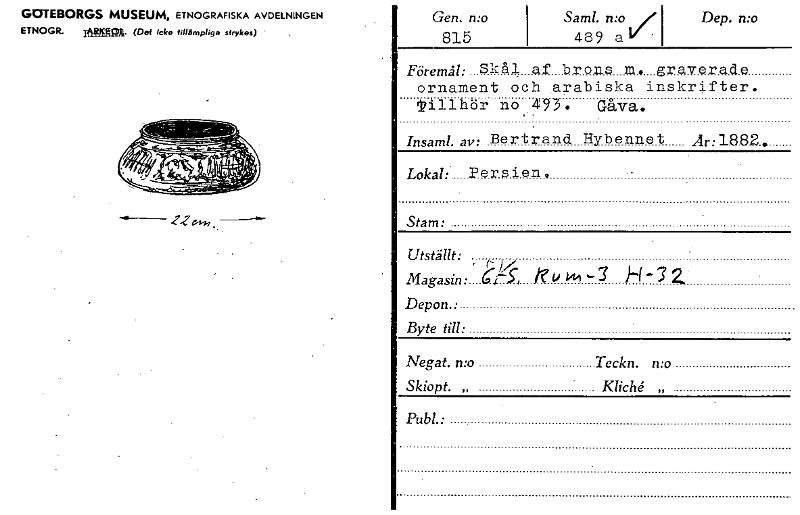 GÖTEBORGS MUSEUM, ETNOGRAFISKA AVDELNINGEN
ETNOGR. ARKEOL. (Det icke tillämpliga strykes)
22 cm.
Gen. n:o Saml. n:o Dep. n:o
815 489 a
Föremål: Skål af brons m. graverade
ornament och arabiska inskrifter.
Tillhör no 493. Gåva.
Insaml. av: Bertrand Hybennet År: 1882.
Lokal: Persien.
Stam:
Utställt:
Magasin: Rum-3 H-32
Depon.:
Byte till:
Negat. n:o Teckn. n:o
Skiopt. „ Kliché „
Publ.: